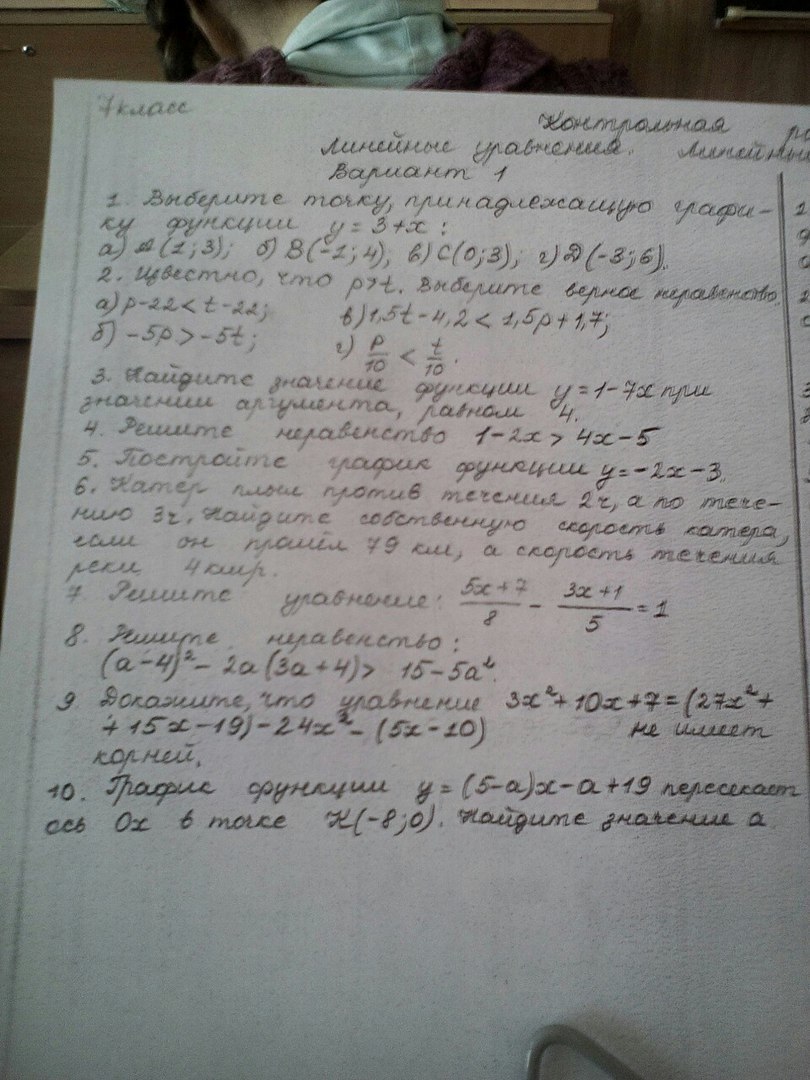 7 класс
Контрольная
Линейные уравнения. Линейны
Вариант 1
1. Выберите точку, принадлежащую графи-
ку функции y = 3+x :
а) A(1;3); б) B(-1;4); в) C(0;3); г) Д(-3;6).
2. Известно, что p>t. Выберите верное неравенство.
а) p-22 < t-22; в) 1,5t-4,2 < 1,5p+1,7;
б) -5p > -5t; г) p/10 < t/10.
3. Найдите значение функции y=1-7x при
значении аргумента, равном 4.
4. Решите неравенство 1-2x > 4x-5
5. Постройте график функции y=-2x-3.
6. Катер плыл против течения 2ч, а по тече-
нию 3ч. Найдите собственную скорость катера,
если он прошёл 79 км, а скорость течения
реки 4км/ч.
7. Решите уравнение: (5x+7)/8 - (3x+1)/5 = 1
8. Решите неравенство:
(a-4)² - 2a(3a+4) > 15-5a².
9 Докажите, что уравнение 3x²+10x+7=(27x²+
+15x-19)-24x²-(5x-10) не имеет
корней.
10. График функции y=(5-a)x-a+19 пересекает
ось Ox в точке K(-8;0). Найдите значение a